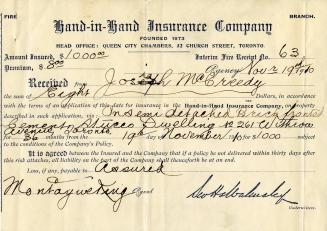 FIRE
BRANCH.
Hand-in-Hand Insurance Company
FOUNDED 1873
HEAD OFFICE: QUEEN CITY CHAMBERS, 32 CHURCH STREET, TORONTO.
Amount Insured, $1000.00
Interim Fire Receipt No. 63
Premium, $8.00
Agency Nov 2 19
Received from Joseph McCreedy
the sum of Eight Dollars, in accordance
with the terms of an application of this date for insurance in the Hand-in-Hand Insurance Company, on property
described in mow application, viz: On Semi detached Brick fronted
Cement Stucco Dwelling 261
Avenue, Toronto
36 months from 19th November for $1000 subject
to the conditions of the Company's Policy.
It is agreed between the Insured and the Company that if a policy be not delivered within thirty days after
this risk attaches, all liability on the part of the Company shall thenceforth be at an end.
Loss, if any, payable to Assured
Agent
Underwriters.